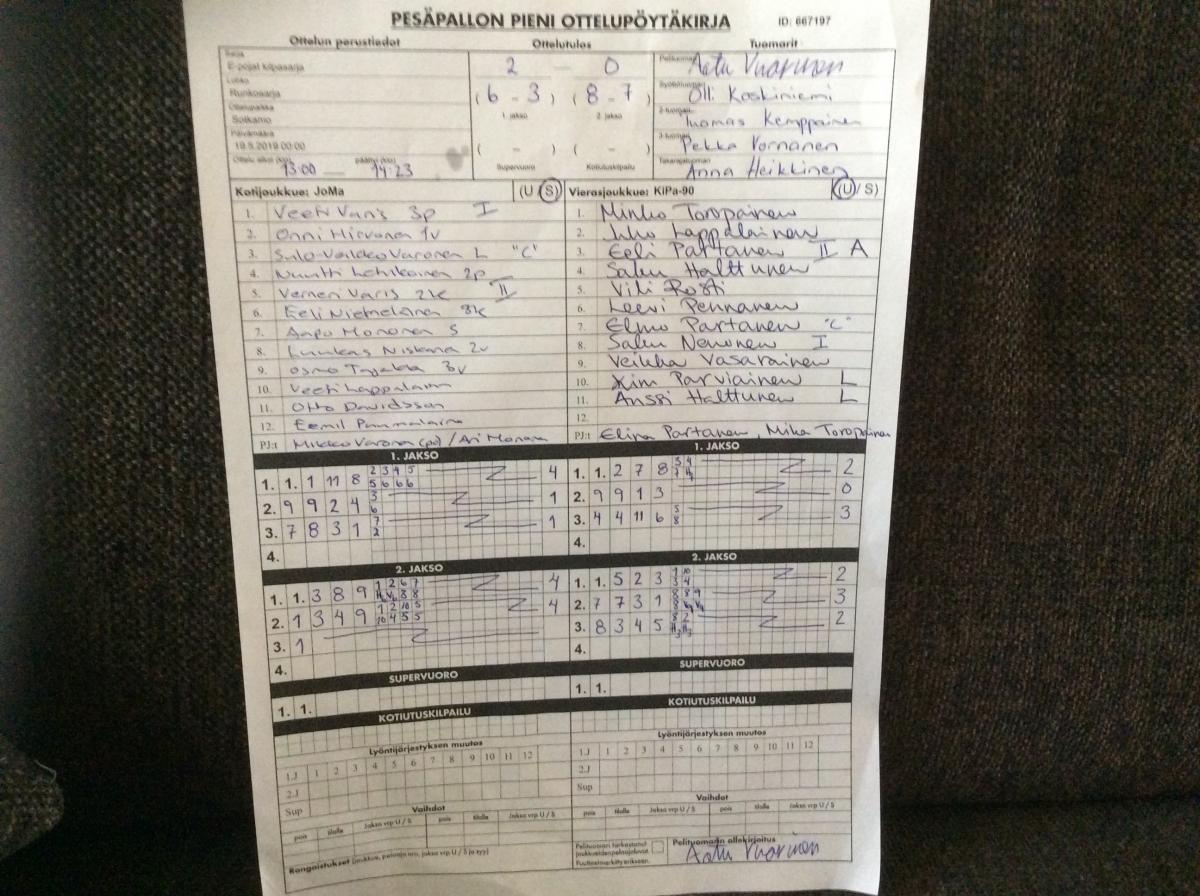 PESÄPALLON PIENI OTTELUPÖYTÄKIRJA ID: 667197
Ottelun perustiedot Ottelutulos Tuomarit
Sarja
E-pojat kilpasarja
Lohko
Runkosarja
Ottelupaikka
Sotkamo
Päivämäärä
19.5.2019 00:00
Ottelu alkoi (klo) 13:00 päättyi (klo) 14:23
2 — 0
( 6 - 3 ) ( 8 - 7 )
1. jakso 2. jakso
( - ) ( - )
Supervuoro Kotiutuskilpailu
Pelituomari Aatu Vuorinen
Syöttötuomari Olli Koskiniemi
2-tuomari Tuomas Kemppainen
3-tuomari Pekka Vornanen
Takarajatuomari Anna Heikkinen
Kotijoukkue: JoMa (U S)
1. Veeti Varis 3p I
2. Onni Hirvonen 1v
3. Sulo-Veikko Varonen L "C"
4. Nuutti Lehikoinen 2p
5. Verneri Varis 2k II
6. Eeli Niemeläinen 3k
7. Aapo Mononen S
8. Luukas Niskanen 2v
9. Osmo 3v
10. Veeti Lappalainen
11. Otto Davidsson
12. Eemil
PJ:t Mikko Varonen (pj) / Ari Mononen
Vierasjoukkue: KiPa-90 (U / S)
1. Minko Toropainen
2. Juho Lappalainen
3. Eeli Partanen II A
4. Salu Halttunen
5. Vili Rosti
6. Leevi Pennanen
7. Elmo Partanen "C"
8. Salu Nenonen I
9. Veikka Vasarainen
10. Kim Parviainen L
11. Anssi Halttunen L
12.
PJ:t Elina Partanen, Mika Toropainen
1. JAKSO
1. 1. 1 11 8 2 3 4 5 4
5 6 6 6
2. 9 9 2 4 3 1
6
3. 7 8 3 1 7 1
2
4.
1. JAKSO
1. 1. 2 7 8 3 4 2
2. 9 9 1 3 0
3. 4 4 11 6 5 3
8
4.
2. JAKSO
1. 1. 3 8 9 1 2 6 7 4
8 8
2. 1 3 4 9 1 2 10 5 4
10 4 5 5
3. 1
4.
2. JAKSO
1. 1. 5 2 3 1 10 2
3 4
2. 7 7 3 1 8 8 9 3
3. 8 3 4 5 2
4.
SUPERVUORO
1. 1.
SUPERVUORO
1. 1.
KOTIUTUSKILPAILU
KOTIUTUSKILPAILU
Lyöntijärjestyksen muutos
1.J 1 2 3 4 5 6 7 8 9 10 11 12
2.J
Sup
Lyöntijärjestyksen muutos
1.J 1 2 3 4 5 6 7 8 9 10 11 12
2.J
Sup
Vaihdot
pois tilalle Jakso vrp U / S pois tilalle Jakso vrp U / S
Vaihdot
pois tilalle Jakso vrp U / S pois tilalle Jakso vrp U / S
Rangaistukset (joukkue, pelaaja nro, jakso vrp U / S ja syy)
Pelituomari tarkastanut
joukkueiden pelaajaluvat
Puutteet merkitty erikseen.
Pelituomarin allekirjoitus
Aatu Vuorinen